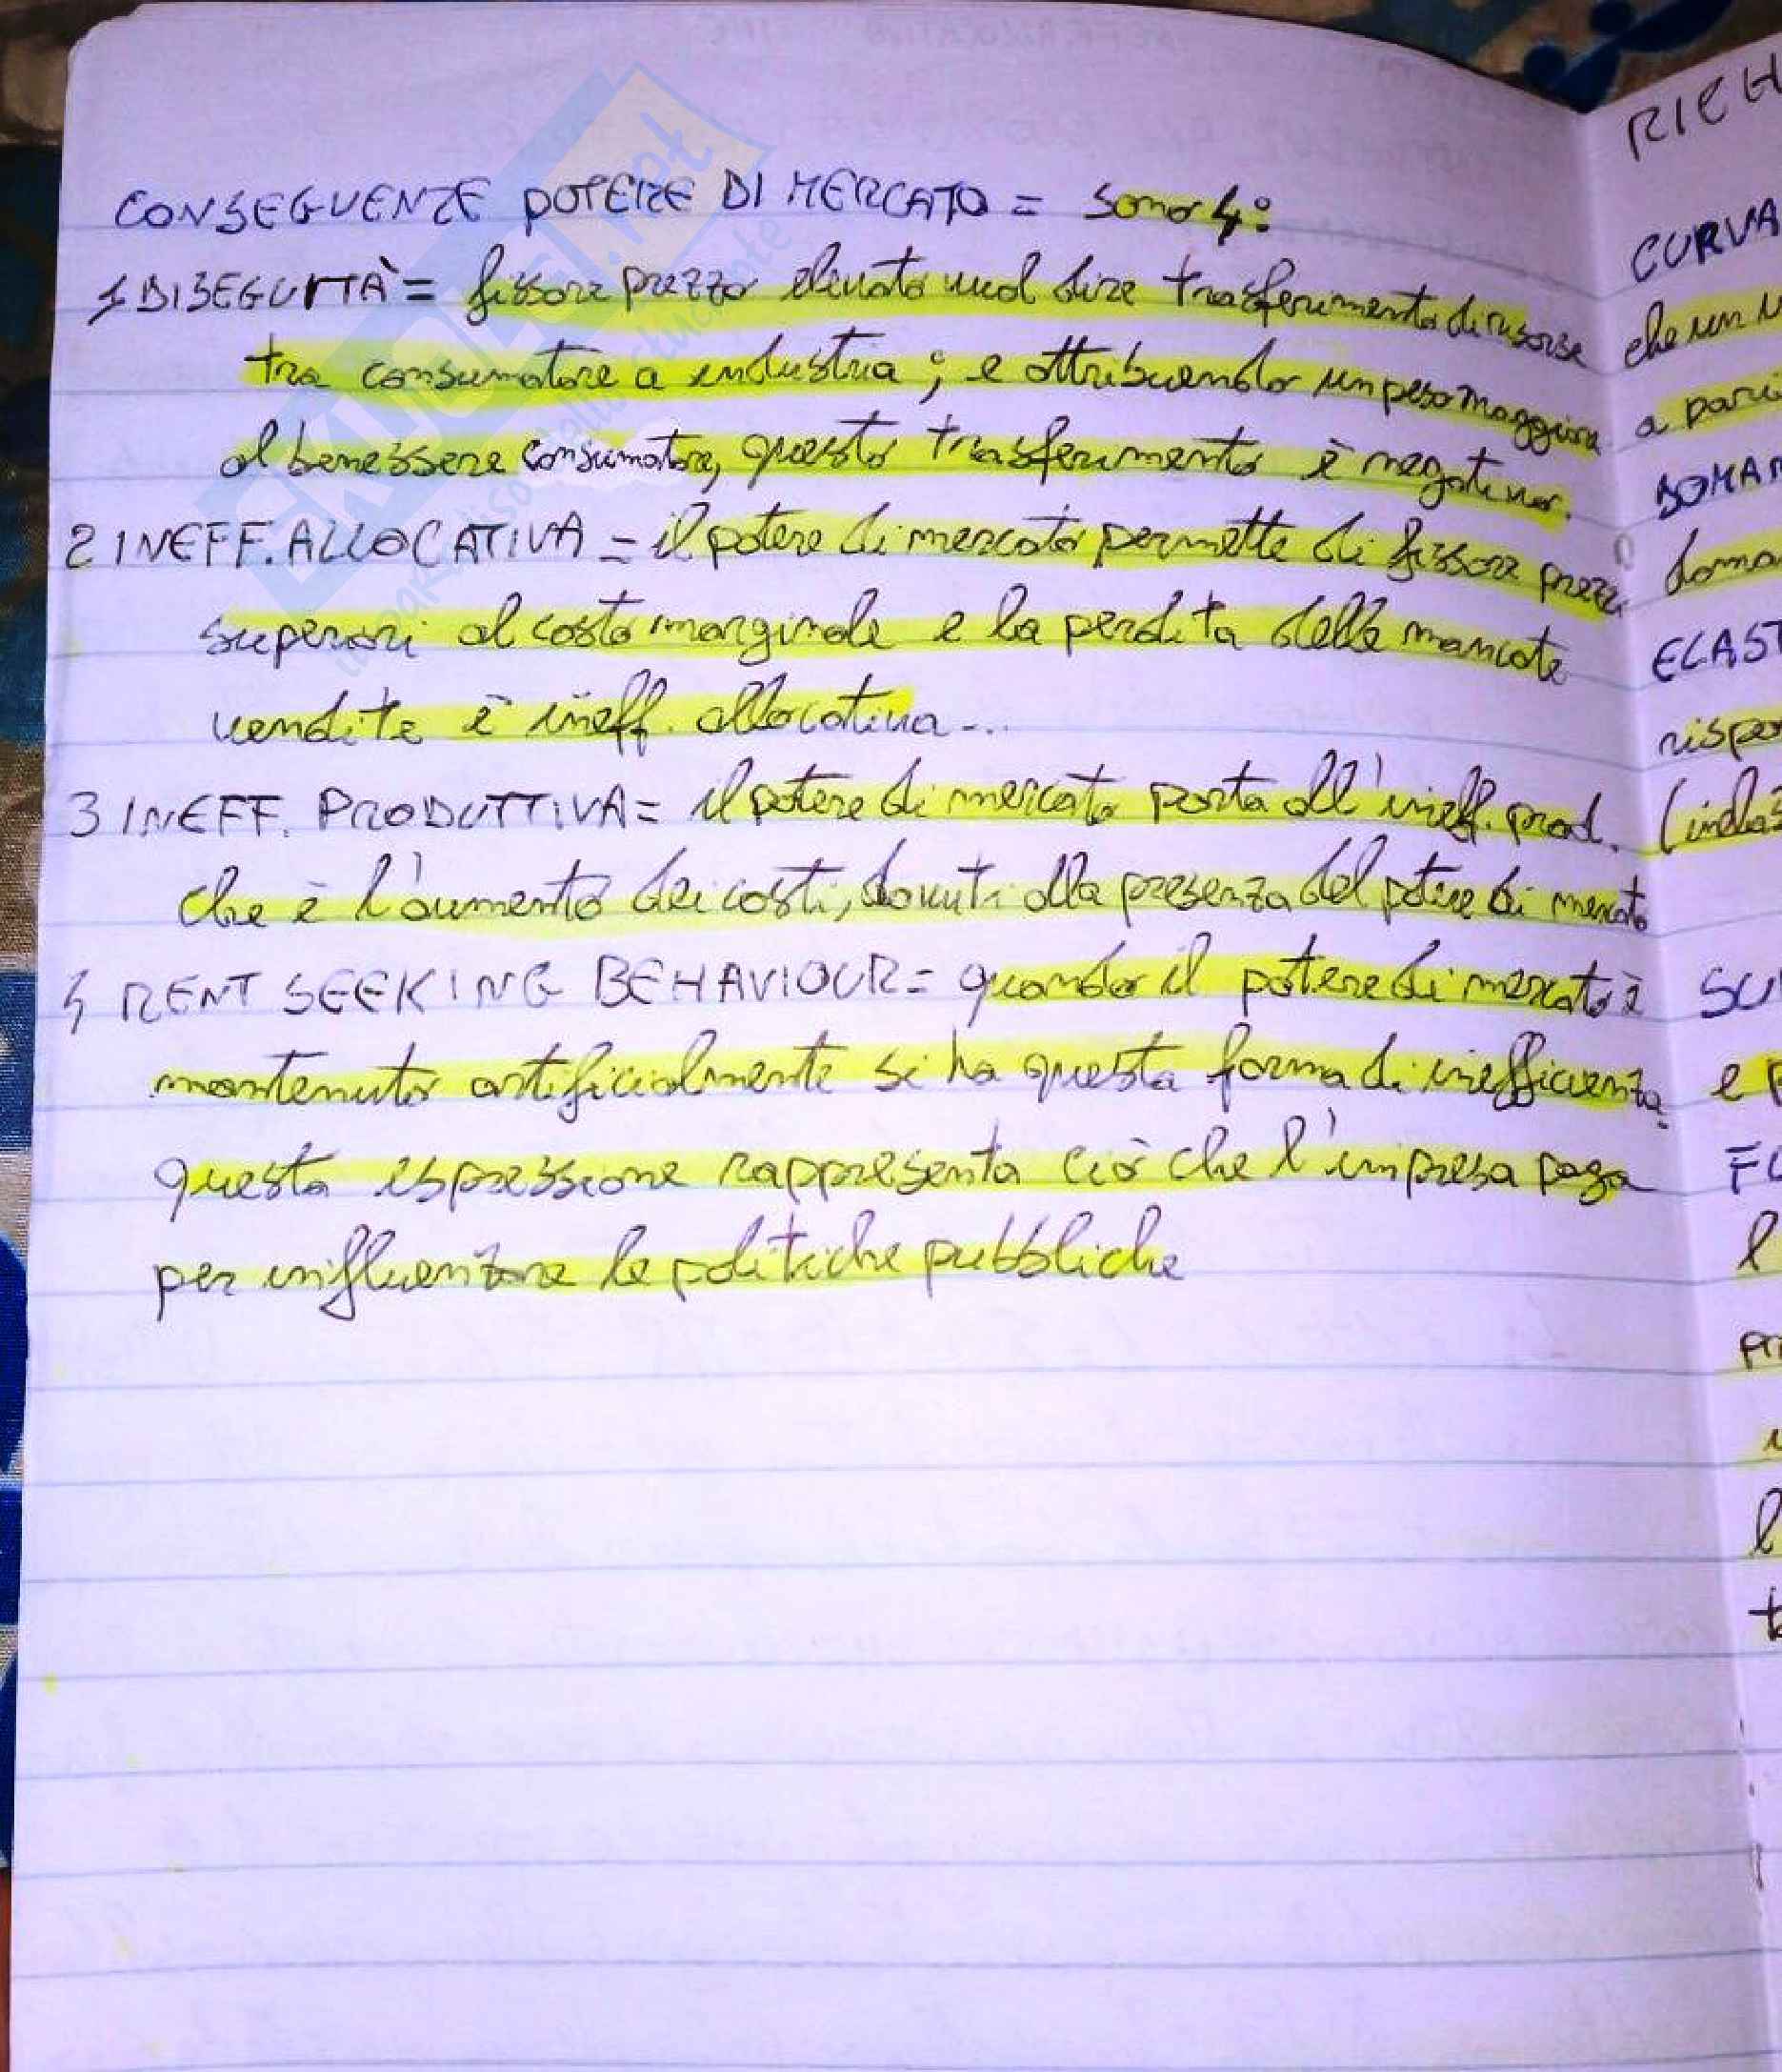 CONSEGUENZE POTERE DI MERCATO = sono 4:
1 DISEGUITÀ = fissare prezzo elevato vuol dire trasferimento di risorse
tra consumatore a industria; e attribuendo un peso maggiore
al benessere consumatore, questo trasferimento è negativo.
2 INEFF. ALLOCATIVA = il potere di mercato permette di fissare prezzi
superiori al costo marginale e la perdita delle mancate
vendite è ineff. allocativa...
3 INEFF. PRODUTTIVA = il potere di mercato porta all'ineff. prod.
che è l'aumento dei costi, dovuti alla presenza del potere di mercato
4 RENT SEEKING BEHAVIOUR = quando il potere di mercato è
mantenuto artificialmente si ha questa forma di inefficienza.
questa espressione rappresenta ciò che l'impresa paga
per influenzare le politiche pubbliche
RICH
CURVA
che un
a pari
DOMAN
doma
ELAST
risper
e p
l'
l
SKUOLA.net